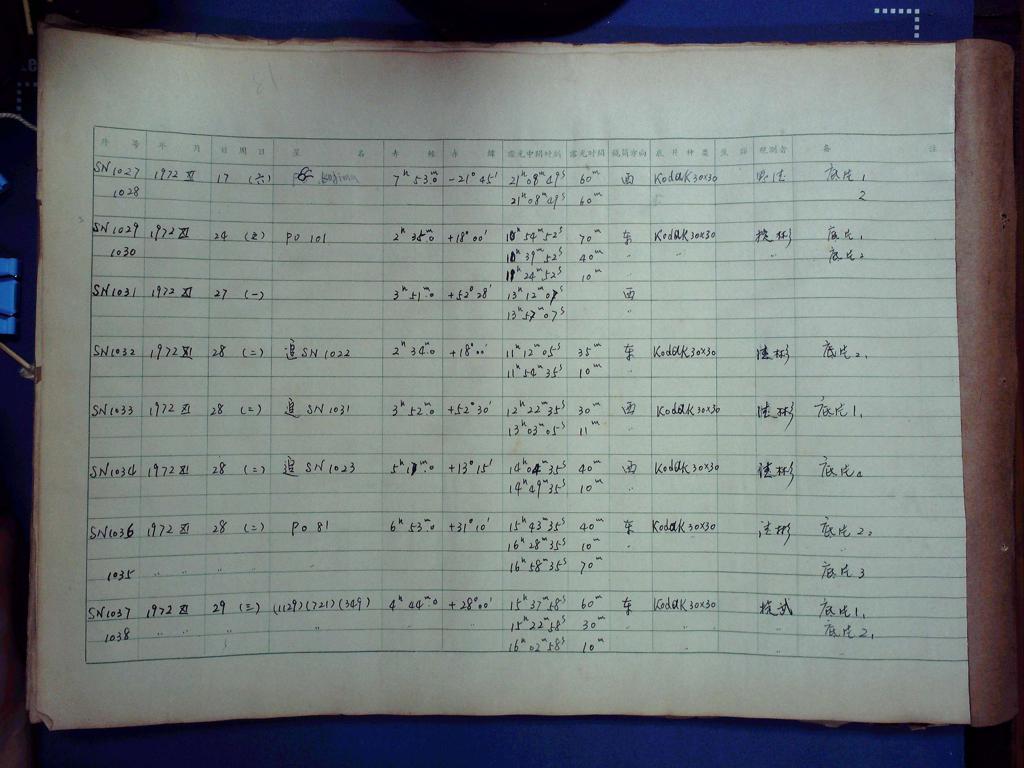 片 号 年 月 日 周 日 星 名 赤 经 赤 纬 露光中间时刻 露光时间 镜筒方向 底 片 种 类 观测者 备 注
SN1027 1972 XI 17 (六) Kojima 7h 53m.0 -21° 45' 21h 09m 49s 60m 西 Kodak 30×30 底片1
1028 21h 08m 49s 60m 2
SN1029 1972 XI 24 PO 101 2h 35m.0 +18° 00' 10h 54m 52s 70m 东 Kodak 30×30 底片1
1030 10h 39m 52s 40m 〃 〃 〃 底片2
11h 24m 52s 10m 〃
SN1031 1972 XI 27 (一) 3h 51m.0 +52° 28' 13h 12m 07s 西
13h 57m 07s 〃
SN1032 1972 XI 28 (二) 追 SN 1022 2h 34m.0 +18° 00' 11h 12m 05s 35m 东 Kodak 30×30 底片2,
11h 54m 35s 10m 〃
SN1033 1972 XI 28 (二) 追 SN 1031 3h 52m.0 +52° 30' 12h 22m 35s 30m 西 Kodak 30×30 底片1,
13h 03m 05s 11m
SN1034 1972 XI 28 (二) 追 SN 1023 5h 17m.0 +13° 15' 14h 04m 35s 40m 西 Kodak 30×30 底片
14h 49m 35s 10m 〃
SN1036 1972 XI 28 (二) PO 81 6h 53m.0 +31° 10' 15h 43m 35s 40m 东 Kodak 30×30 底片 2
16h 28m 35s 10m 〃
1035 〃 〃 〃 〃 16h 58m 35s 70m 底片3
SN1037 1972 XI 29 (三) (1129)(721)(349) 4h 44m.0 +28° 00' 15h 37m 58s 60m 东 Kodak 30×30 底片1,
1038 〃 〃 〃 〃 〃 15h 22m 58s 30m 〃 〃 〃 底片2,
16h 02m 58s 10m 〃 〃